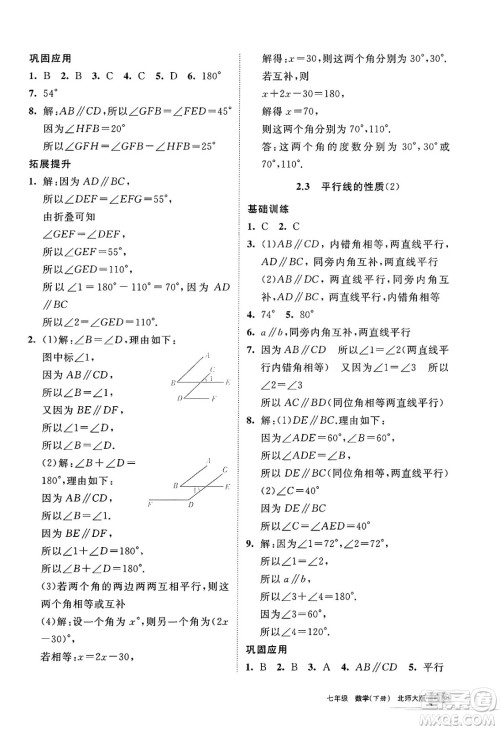 巩固应用
1. B  2. B  3. C  4. C  5. D  6. 180°
7. 54°
8. 解：AB∥CD，所以∠GFB=∠FED=45°
因为∠HFB=20°
所以∠GFH=∠GFB－∠HFB=25°
拓展提升
1. 解：因为AD∥BC，
所以∠DEF=∠EFG=55°
由折叠可知
所以∠GEF=55°，
所以∠GED=110°，
所以∠1=180°－110°=70°，因为AD∥BC
所以∠2=∠GED=110°
2. (1)解：理由如下：
图中标∠1，
因为AB∥CD
所以∠B=∠1
又因为BE∥DF，
所以∠1=∠D
所以∠B=∠D
(2)解：∠B+∠D=180°，理由如下：
因为AB∥CD
所以∠B=∠1
因为BE∥DF，
所以∠1+∠D=180°
所以∠B+∠D=180°.
(3)若两个角的两边两两互相平行，则这两个角相等或互补
(4)解：设一个角为x°，则另一个角为2x°－30°，
若相等：x=2x－30，
解得：x=30，则这两个角分别为30°，30°
若互补，则
x+2x－30=180，
解得：x=70，
所以这两个角分别为70°，110°
答：这两个角的度数分别为30°，30°或70°，110°.
2.3 平行线的性质(2)
基础训练
1. C  2. C
3. (1)AB∥CD，内错角相等，两直线平行
(2)AB∥CD，同旁内角互补，两直线平行
4. 74°  5. 80°
6. a∥b，同旁内角互补，两直线平行
7. 因为∠1=∠2  又因为∠1=∠3  所以∠3=∠2
所以AC∥BD(同位角相等，两直线平行)
8. 解：(1)DE∥BC，理由如下：
因为∠ADE=60°，∠B=60°，
所以∠ADE=∠B
所以DE∥BC(同位角相等，两直线平行)
(2)因为DE∥BC，
所以∠C=∠AED=40°
9. 解：因为∠1=72°，∠2=72°
所以∠1=∠2，
所以a∥b
所以∠3+∠4=180°
因为∠3=60°
所以∠4=120°
巩固应用
1. B  2. A  3. B  4. B  5. 平行
七年级 数学(下册) 北师大版